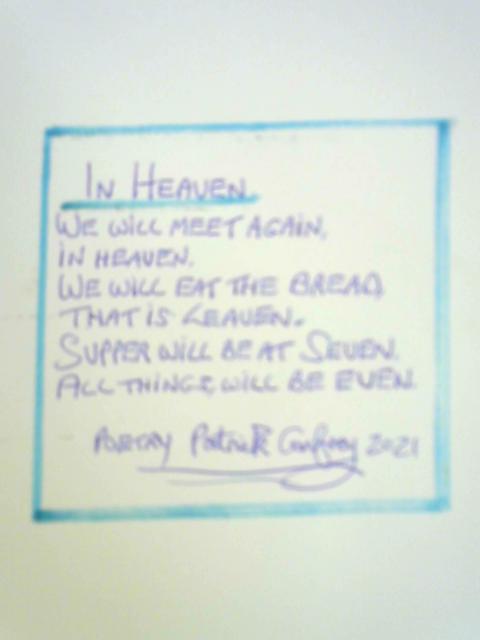 IN HEAVEN.
WE WILL MEET AGAIN,
IN HEAVEN.
WE WILL EAT THE BREAD,
THAT IS LEAVEN.
SUPPER WILL BE AT SEVEN.
ALL THINGS, WILL BE EVEN.
POETRY Patrick 2021